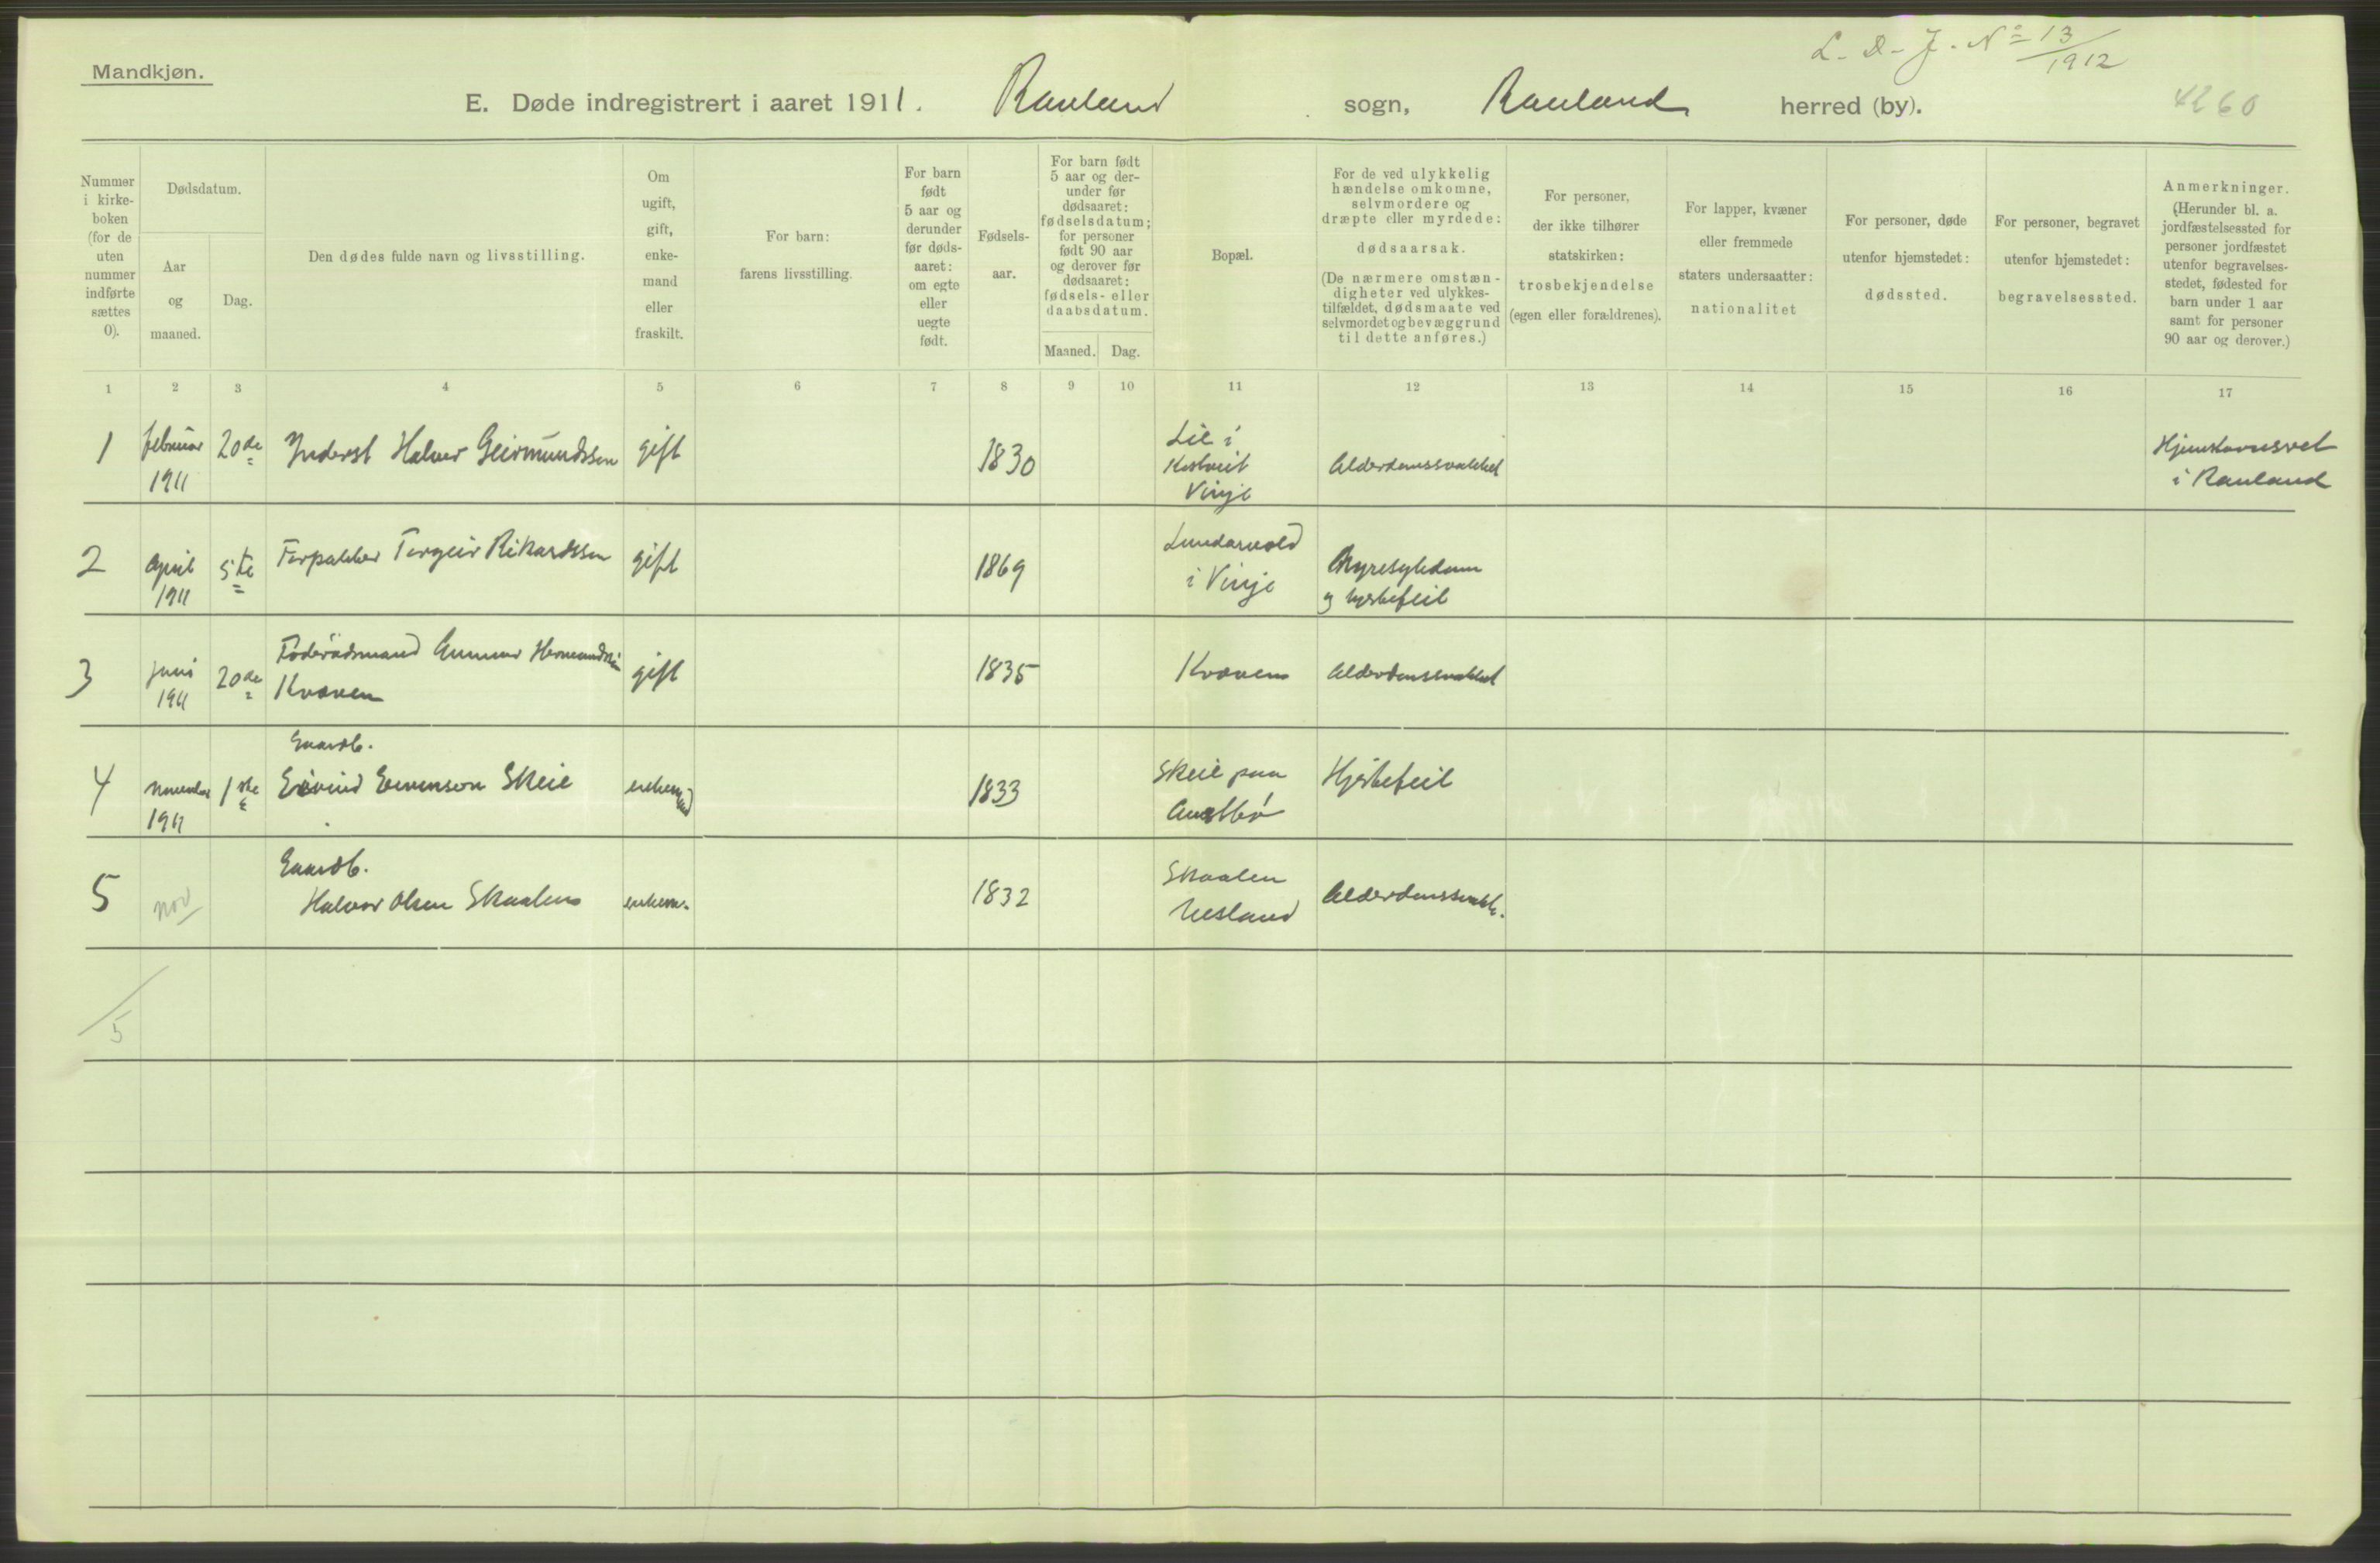 Mandkjøn.
L. D. J. No 13/1912
E. Døde indregistrert i aaret 1911. Rauland sogn, Rauland herred (by).
4260
Nummer i kirke-boken (for de uten nummer indførte sættes 0).
Dødsdatum.
Aar og maaned.
Dag.
Den dødes fulde navn og livsstilling.
Om ugift, gift, enke-mand eller fraskilt.
For barn: farens livsstilling.
For barn født 5 aar og derunder før døds-aaret: om egte eller uegte født.
Fødsels-aar.
For barn født 5 aar og der-under før dødsaaret: fødselsdatum; for personer født 90 aar og derover før dødsaaret: fødsels- eller daabsdatum.
Maaned.
Dag.
Bopæl.
For de ved ulykkelig hændelse omkomne, selvmordere og dræpte eller myrdede: dødsaarsak. (De nærmere omstæn-digheter ved ulykkes-tilfældet, dødsmaate ved selvmordet og bevæggrund til dette anføres.)
For personer, der ikke tilhører statskirken: trosbekjendelse (egen eller forældrenes).
For lapper, kvæner eller fremmede staters undersaatter: nationalitet
For personer, døde utenfor hjemstedet: dødssted.
For personer, begravet utenfor hjemstedet: begravelsessted.
Anmerkninger. (Herunder bl. a. jordfæstelsessted for personer jordfæstet utenfor begravelses-stedet, fødested for barn under 1 aar samt for personer 90 aar og derover.)
1 2 3 4 5 6 7 8 9 10 11 12 13 14 15 16 17
1 februar 1911 20de Inderst Halvor Geirmundssen gift 1830 Lie i Kostveit Vinje Alderdomssvakket i Rauland
2 April 1911 5te Torgeir Rikardssen gift 1869 i Vinje Nyresykdom og hjertefeil
3 Juni 1911 20de Føderådsmand Gunnar Kvaven gift 1835 Kvaven Alderdomssvakket
4 November 1911 1ste Gaardb. Eivind Evenson Skeie enkemand 1833 Skeie paa Austbø Hjertefeil
5 nov Gaardb. Halvor Olsen Skaalen enkem. 1832 Skaalen Alderdomssvakk.
5